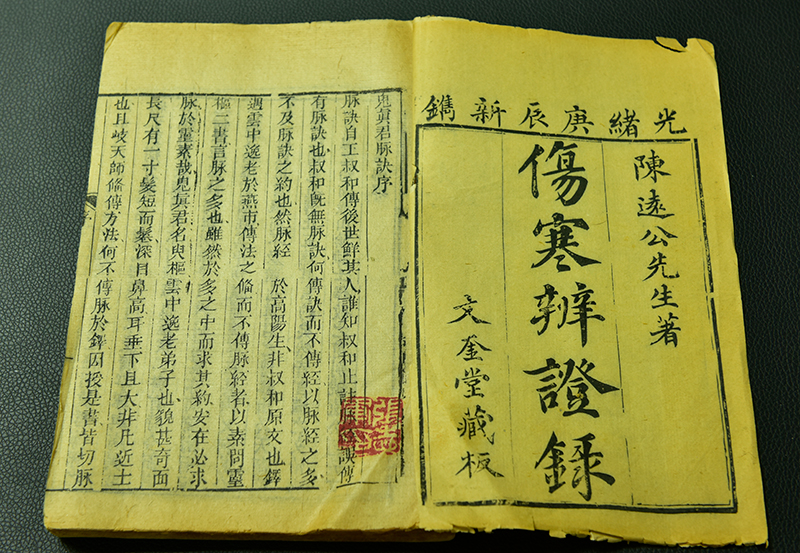 光緒庚辰新鐫
陳遠公先生著
傷寒辨證錄
文奎堂藏板
鬼眞君脉訣序
脉訣自王叔和傳後世鮮其人誰知叔和止註脉訣傳
有脉訣也叔和旣無脉訣何傳訣而不傳經以脉經之多
不及脉訣之約也然脉經 於高陽生非叔和原文也鐸
遇雲中逸老於燕市傳法之俻而不傳脉經者以素問靈
樞二書言脉之多也雖然於多之中而求其約安在必求
脉於靈素哉鬼眞君名臾樞雲中逸老弟子也貌甚奇面
長尺有一寸髮短而鬈深目鼻高耳垂下且大非凡近士
也且岐天師俻傳方法何不傳脉於鐸因授是書皆切脉